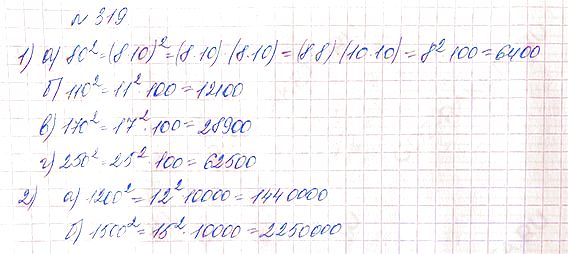 № 319
1) а) 80² = (8·10)² = (8·10)·(8·10) = (8·8)·(10·10) = 8²·100 = 6400
б) 110² = 11²·100 = 12100
в) 170² = 17²·100 = 28900
г) 250² = 25²·100 = 62500
2) а) 1200² = 12²·10000 = 1440000
б) 1500² = 15²·10000 = 2250000